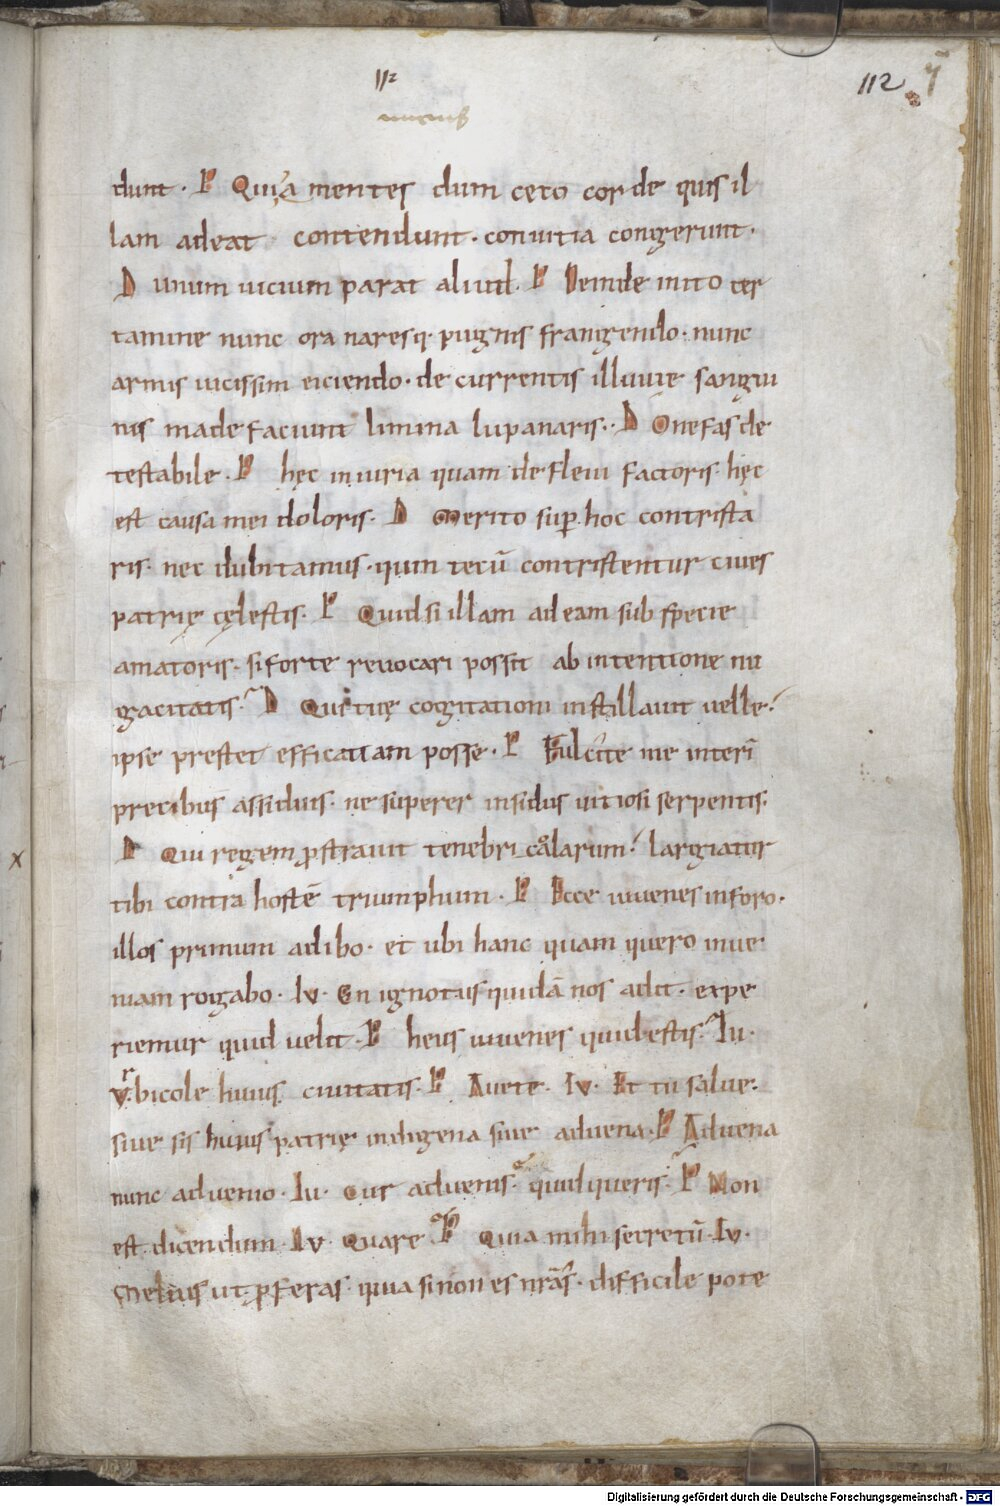 112
112
dunt · P Quia mentes dum cęco corde quis il
lam adeat contendunt · conuitia congerunt ·
D unum uicium parat aliud · P Deinde inito cer
tamine nunc ora naresq· pugnis frangendo · nunc
armis uicissim eiciendo · decurrentis illuuie sangui
nis madefaciunt limina lupanaris · D O nefas de
testabile · P hęc iniuria quam defleui factoris · hęc
est causa mei doloris · D Merito sup hoc contrista
ris · nec dubitamus · quin tecū contristentur ciues
patrię cęlestis · P Quid si illam adeam sub specie
amatoris · si forte reuocari possit ab intentione nu
gacitatis? D Qui tuę cogitationi instillauit uelle?
ipse prestet efficatiam posse · P Fulcite me interī
precibus assiduis · ne superer insidiis uitiosi serpentis ·
D Qui regem prostrauit tenebricolarum? largiatur
tibi contra hostē triumphum · P Ecce iuuenes in foro ·
illos primum adibo · et ubi hanc quam quero inue
niam rogabo · Iv · En ignotus quidā nos adit · expe
riemur quid uelit · P heus iuuenes quid estis? Iu ·
Vrbicole huius ciuitatis · P Auete · Iv · Et tu salue ·
siue sis huius patrię indigena siue aduena · P Aduena
nunc aduenio · Iu · Cur aduenis? quid queris? P Non
est dicendum · Iv · Quare? P Quia mihi secretū · Iv ·
Melius ut pferas · quia si non es nrās · difficile pote
Digitalisierung gefördert durch die Deutsche Forschungsgemeinschaft - DFG